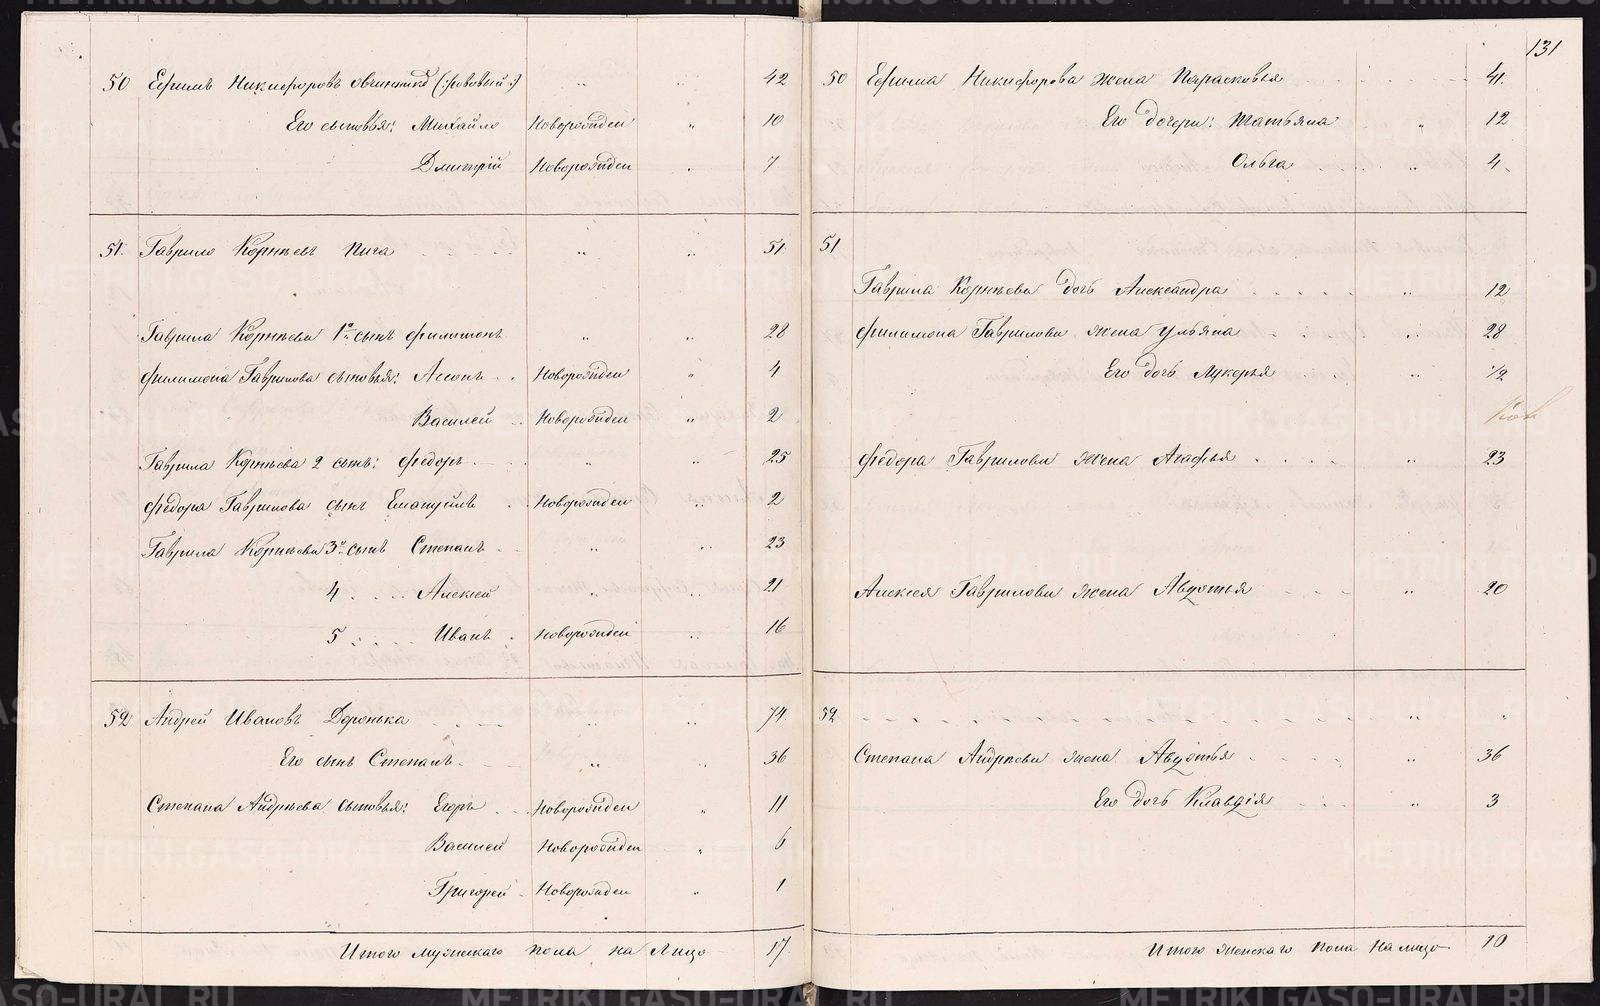 131
50 Ефимъ Никифоровъ Овчинник (: :) 42
Его сыновья: Михайло Новорожден " 10
Дмитрій Новорожден " 7
51. Гаврило Корнѣевъ Пига " " 51
Гаврила Корнѣева 1й сынъ Филимонъ " " 28
Филимона Гаврилова сыновья: Новорожден " 4
Василей Новорожден " 2
Гаврила Корнѣева 2 сынъ: Федоръ " " 25
Федора Гаврилова сынъ Емануйлъ Новорожден " 2
Гаврила Корнѣева 3й сынъ Степанъ " " 23
4 Алексей " " 21
5 Иванъ Новорожден " 16
52 Андрей Ивановъ Доронька " " 74
Его сынъ Степанъ " " 36
Степана Андрѣева сыновья: Егоръ Новорожден " 11
Василей Новорожден " 6
Григорей Новорожден " 1
Итого мужескаго пола на Лицо 17
50 Ефима Никифорова жена Парасковья 41
Его дочери: Татьяна " 12
Ольга " 4
51
Гаврила Корнѣева дочь Александра " 12
Филимона Гаврилова жена Ульяна " 28
Его дочь Лукерья " 1/2
Федора Гаврилова жена Агафья " 23
Алексея Гаврилова жена Авдотья " 20
52 " "
Степана Андрѣева жена Авдотья " 36
Его дочь Клавдія " 3
Итого женскаго пола на лицо 10
METRIKI.GASO-URAL.RU